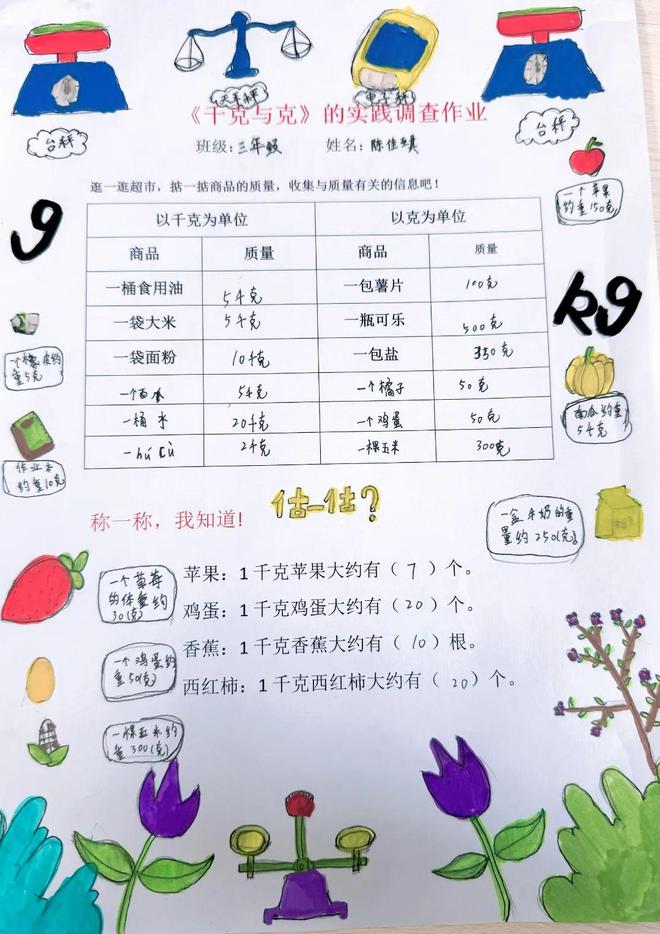 天平秤 电子秤
《千克与克》的实践调查作业
台秤
台秤
班级:三年级 姓名:陈佳
一个苹果
约重150克
逛一逛超市，掂一掂商品的质量，收集与质量有关的信息吧！
g
kg
以千克为单位 以克为单位
商品 质量 商品 质量
一桶食用油 5千克 一包薯片 100克
一袋大米 5千克 一瓶可乐 500克
一袋面粉 10千克 一包盐 350克
一个西瓜 5千克 一个橘子 50克
一桶水 20千克 一个鸡蛋 50克
一hú cù 2千克 一棵玉米 300克
一个橡皮约
重5克
作业本
约重10克
南瓜约重
5千克
估一估？
称一称，我知道!
一盒牛奶的重
量约250(克)
苹果：1千克苹果大约有（ 7 ）个。
鸡蛋：1千克鸡蛋大约有（ 20 ）个。
香蕉：1千克香蕉大约有（ 10 ）根。
西红柿：1千克西红柿大约有（ 20 ）个。
一个草莓
的体重约
30(克)
一个鸡蛋约
重50(克)
一棵玉米约
重300(克)